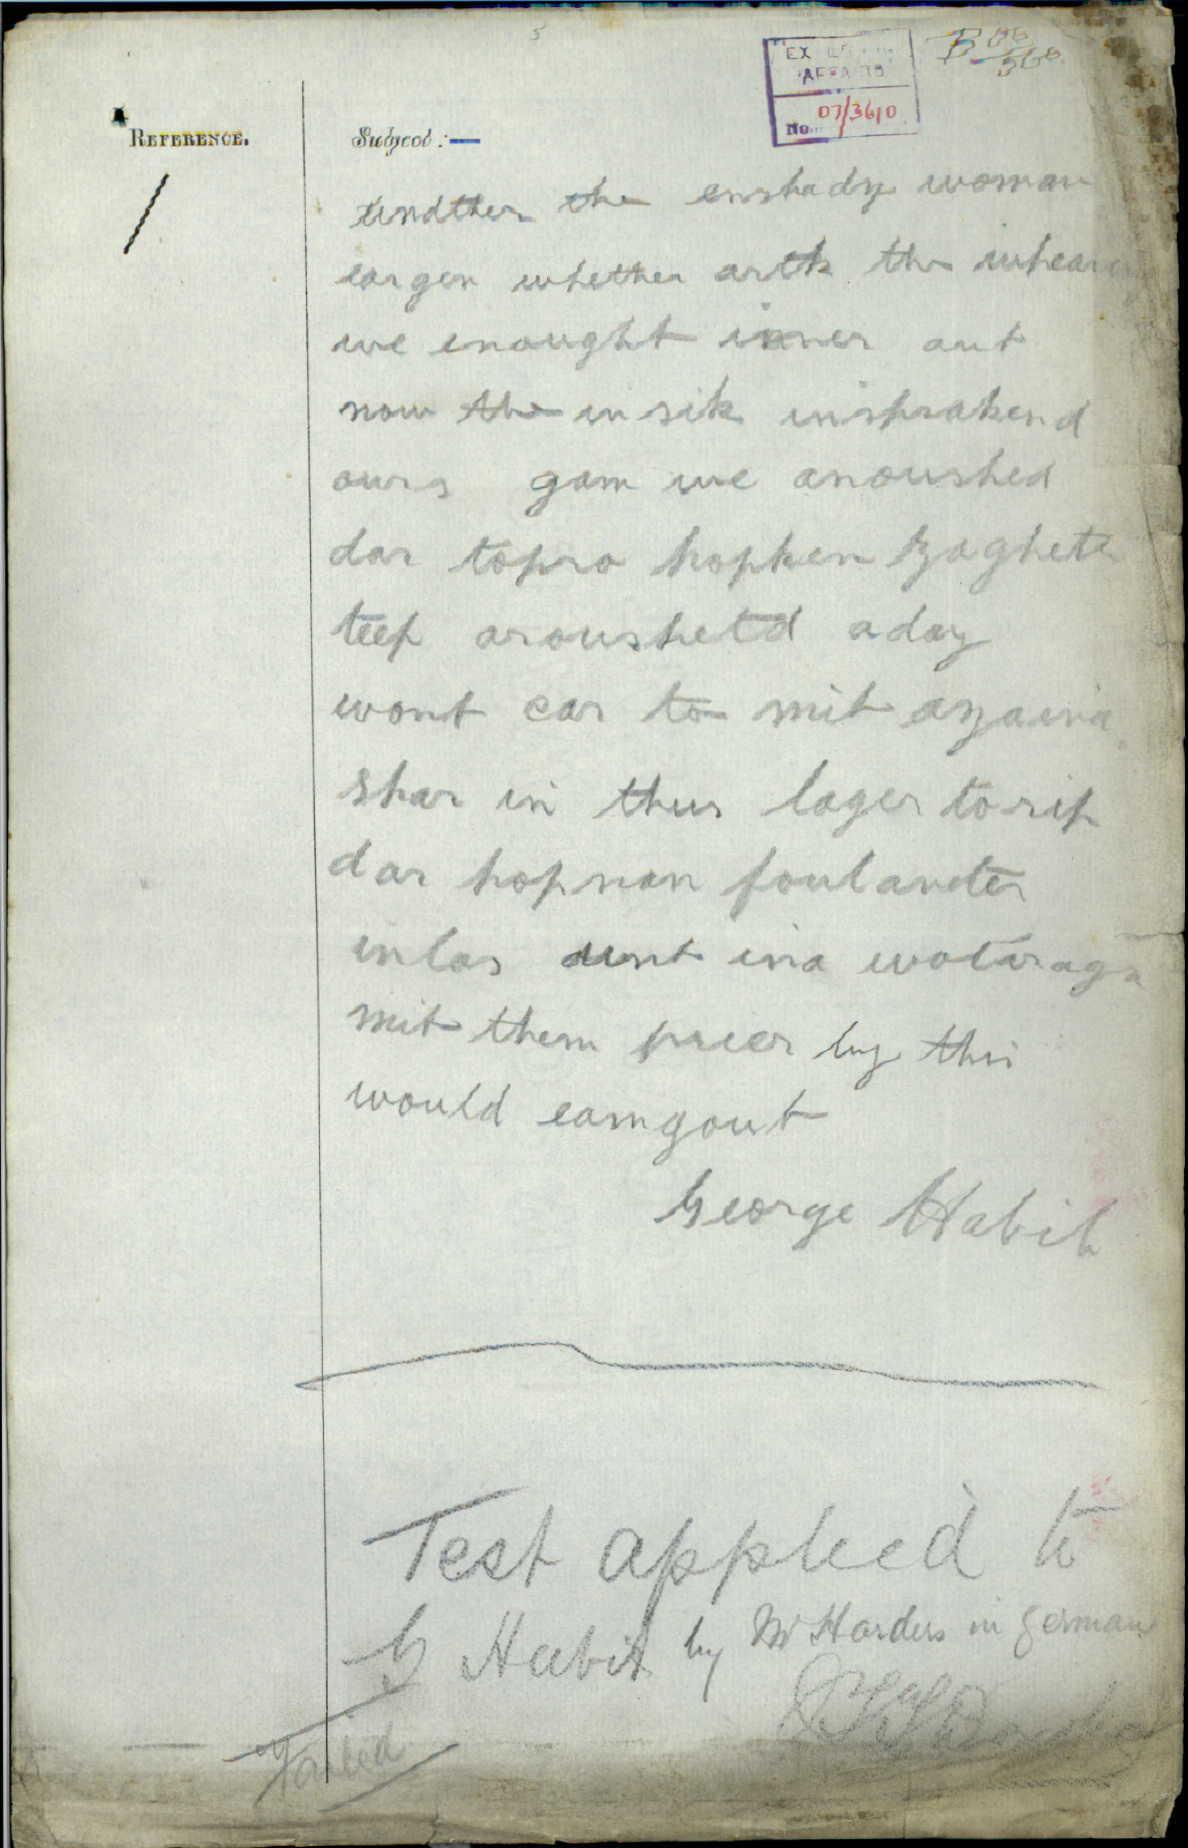 EX
AFFECTED
No. 07/3610
B 06/360
REFERENCE.
Subject:—
undther the enshady woman
eargen whether artk the whear
we enought inner aut
now the in sik insprakend
ours gam we anoushed
dar topro hopken zaghete
teef aroushetd aday
wont ear to mit azaina
shar in thus lager to rif
dar hopnan foulander
inlas aunt ina wotarage
mit them prier by this
would eamgout
George Habib
Test applied to
G Habib by Mr Harders in German
Failed